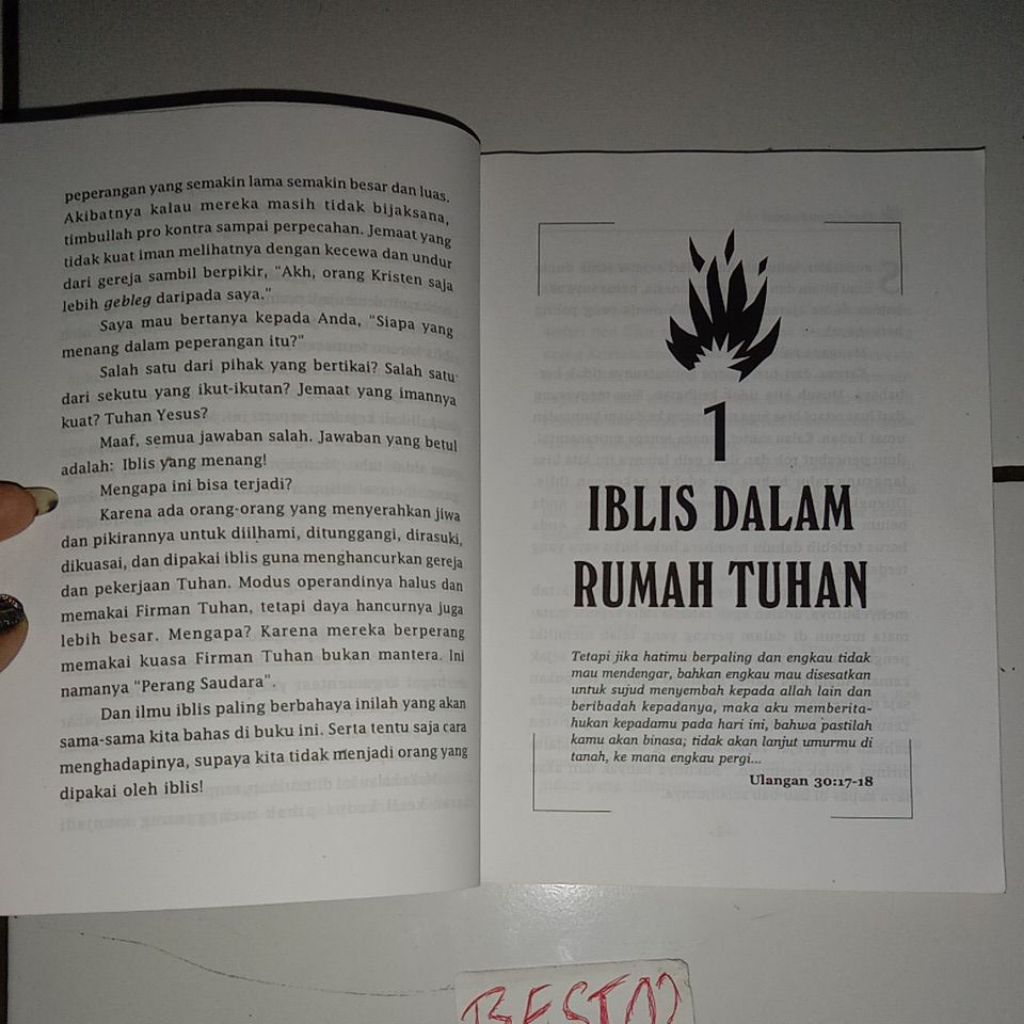 peperangan yang semakin lama semakin besar dan luas.
Akibatnya kalau mereka masih tidak bijaksana,
timbullah pro kontra sampai perpecahan. Jemaat yang
tidak kuat iman melihatnya dengan kecewa dan undur
dari gereja sambil berpikir, "Akh, orang Kristen saja
lebih gebleg daripada saya."
Saya mau bertanya kepada Anda, "Siapa yang
menang dalam peperangan itu?"
Salah satu dari pihak yang bertikai? Salah satu
dari sekutu yang ikut-ikutan? Jemaat yang imannya
kuat? Tuhan Yesus?
Maaf, semua jawaban salah. Jawaban yang betul
adalah: Iblis yang menang!
Mengapa ini bisa terjadi?
Karena ada orang-orang yang menyerahkan jiwa
dan pikirannya untuk diilhami, ditunggangi, dirasuki,
dikuasai, dan dipakai iblis guna menghancurkan gereja
dan pekerjaan Tuhan. Modus operandinya halus dan
memakai Firman Tuhan, tetapi daya hancurnya juga
lebih besar. Mengapa? Karena mereka berperang
memakai kuasa Firman Tuhan bukan mantera. Ini
namanya "Perang Saudara".
Dan ilmu iblis paling berbahaya inilah yang akan
sama-sama kita bahas di buku ini. Serta tentu saja cara
menghadapinya, supaya kita tidak menjadi orang yang
dipakai oleh iblis!
1
IBLIS DALAM
RUMAH TUHAN
Tetapi jika hatimu berpaling dan engkau tidak
mau mendengar, bahkan engkau mau disesatkan
untuk sujud menyembah kepada allah lain dan
beribadah kepadanya, maka aku memberita-
hukan kepadamu pada hari ini, bahwa pastilah
kamu akan binasa; tidak akan lanjut umurmu di
tanah, ke mana engkau pergi...
Ulangan 30:17-18